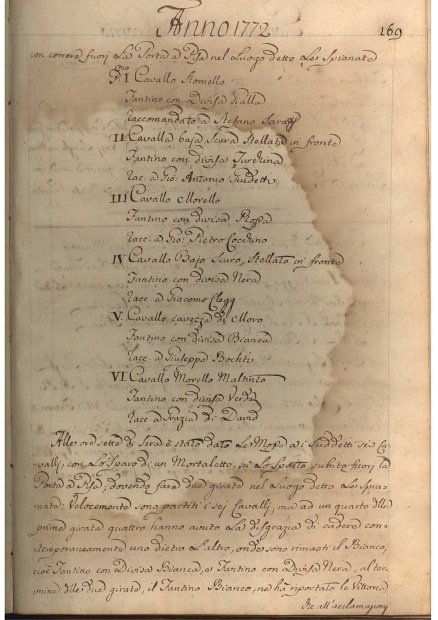 Anno 1772
169
con correra fuori La Porta a Pisa nel Luogo detto Le Spianate
P.mo I Cavallo Stornello
Fantino con Divisa Gialla
Raccomandato a Stefano
II Cavalla baja Scura Stellata in fronte
Fantino con divisa Turchina
Rac. a Gio: Antonio Guidetti
III Cavallo Morello
Fantino con divisa Rossa
Racc. a Gio: Pietro Cocchino
IV Cavallo Bajo Scuro, Stellato in fronte
Fantino con divisa Nera
Racc. a Giacomo Clegg
V Cavallo cavezza di Moro
Fantino con divisa Bianca
Racc. a Giuseppe
VI Cavallo Morello Maltinto
Fantino con divisa Verde
Racc. a Grazia di David
Alle ore sette di Sera è stato dato Le Mosse a i Suddetti sei Ca-
valli, con Lo Sparo di un Mortaletto, su Lo Spazio subito fuori la
Porta a Pisa dovendo fare due girate nel Luogo detto Le Spia-
nate: Velocemente sono partiti i sei Cavalli, ma ad un quarto della
prima girata quattro hanno avuto La disgrazia di cadere con-
temporaneamente uno dietro L'altro, onde sono rimasti il Bianco,
cioè Fantino con Divisa Bianca, e Fantino con Divisa Nera, al ter-
mine delle due girate, il Fantino Bianco, ne ha riportato la Vittoria
all'acclamazioni